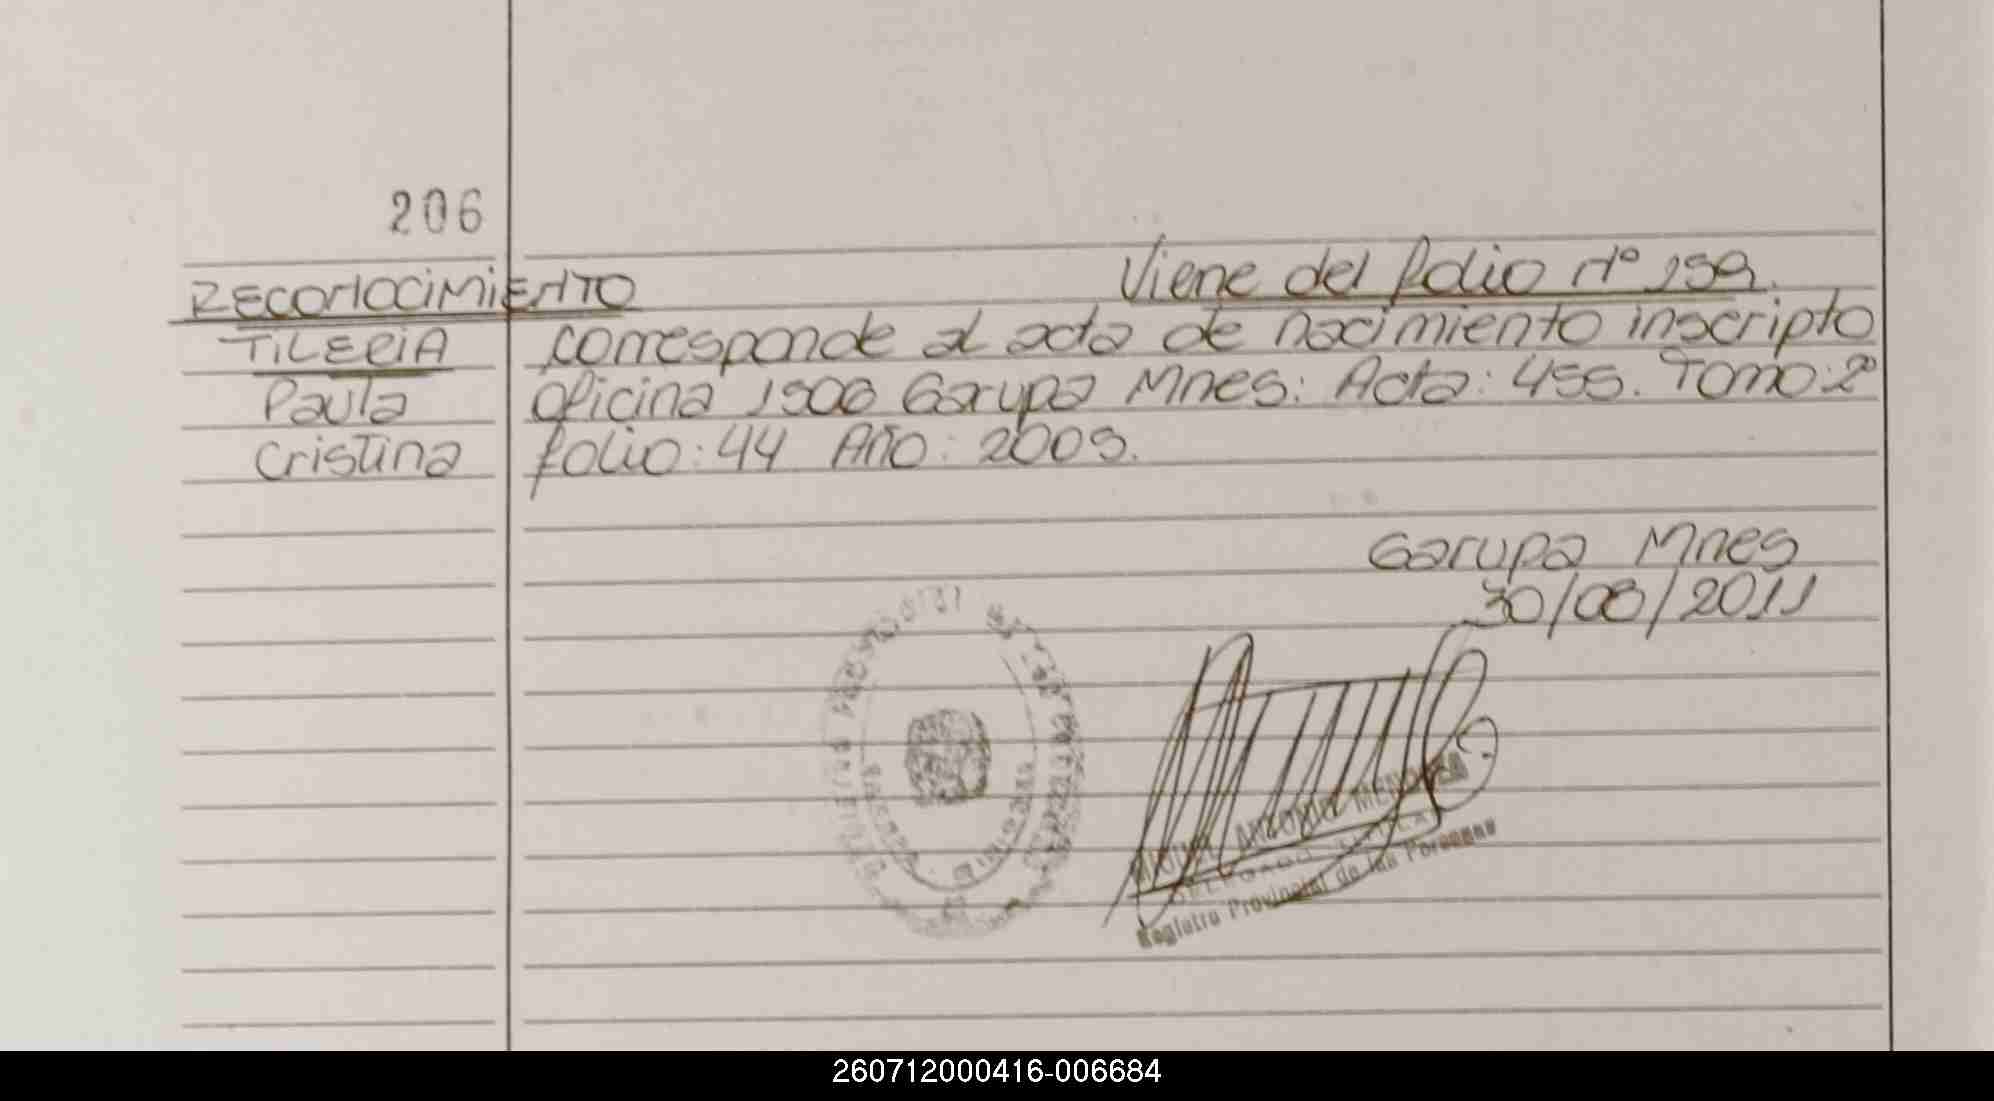 206
RECONOCIMIENTO
Viene del folio Nº 159.
TILERIA
Paula
Cristina
corresponde al acta de nacimiento inscripto
oficina 1906 Garupa Mnes: Acta: 455. Tomo: 2º
folio: 44 Año: 2009.
Garupa Mnes
30/08/2011
ANTONIO
Registro Provincial de las Personas
260712000416-006684